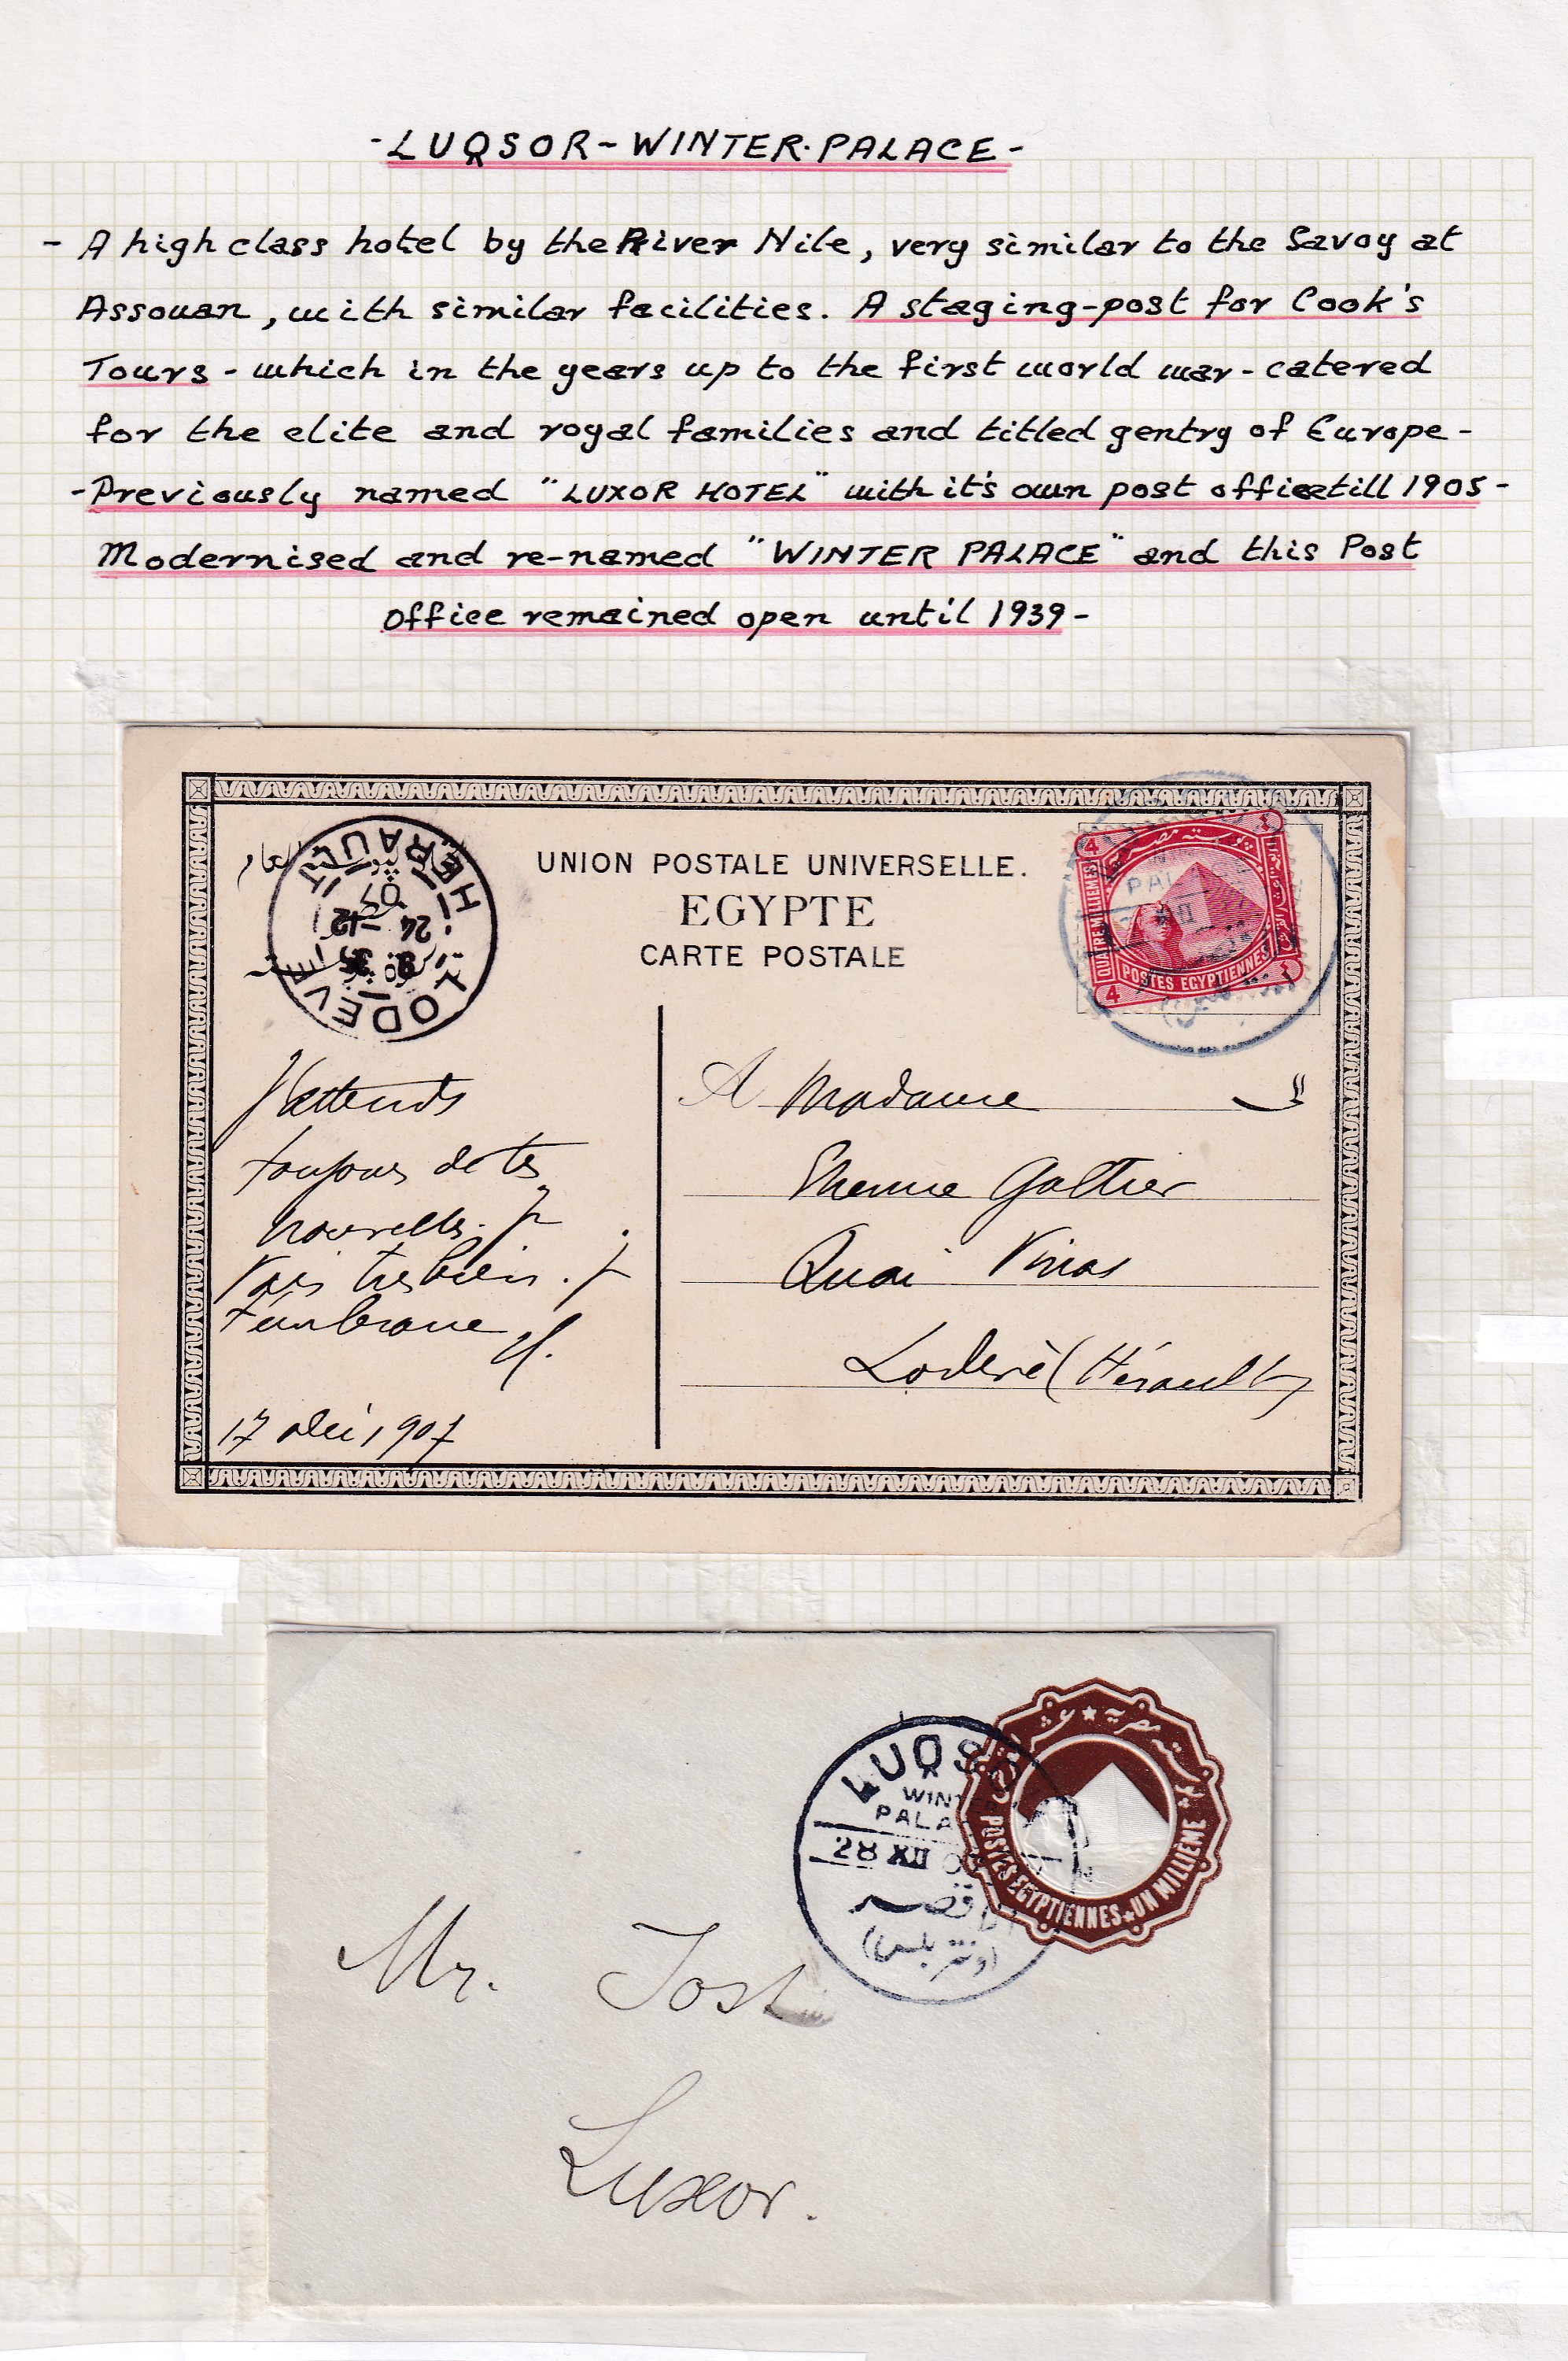 -LUQSOR-WINTER·PALACE-
- A high class hotel by the River Nile, very similar to the Savoy at
Assouan, with similar facilities. A staging-post for Cook's
Tours - which in the years up to the first world war - catered
for the elite and royal families and titled gentry of Europe -
- Previously named "LUXOR HOTEL" with it's own post office till 1905 -
Modernised and re-named "WINTER PALACE" and this Post
Office remained open until 1939 -
UNION POSTALE UNIVERSELLE.
EGYPTE
CARTE POSTALE
LODEVE
HERAULT
24 -12
07
بوسته مصرية
QUATRE MILLIEMES
POSTES EGYPTIENNES
4
4
PAL
XII
J'attends
toujours de tes
nouvelles. Je
vais tres bien. Je
t'embrasse
17 Déc 1907
A Madame
Galtier
Quai Vinas
Lodève (Hérault)
LUQSO
WINT
PALA
28 XII 07
الاقصر
(ونتر بلس)
بوسته مصرية
POSTES EGYPTIENNES UN MILLIEME
Mr. Jost
Luxor.